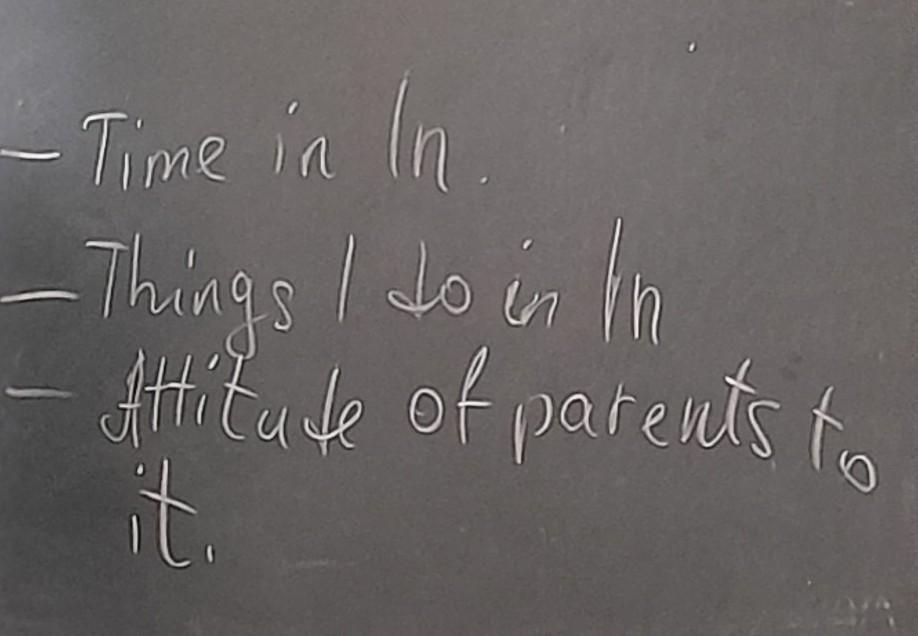 - Time in In.
- Things I do in In
- Attitude of parents to
it.